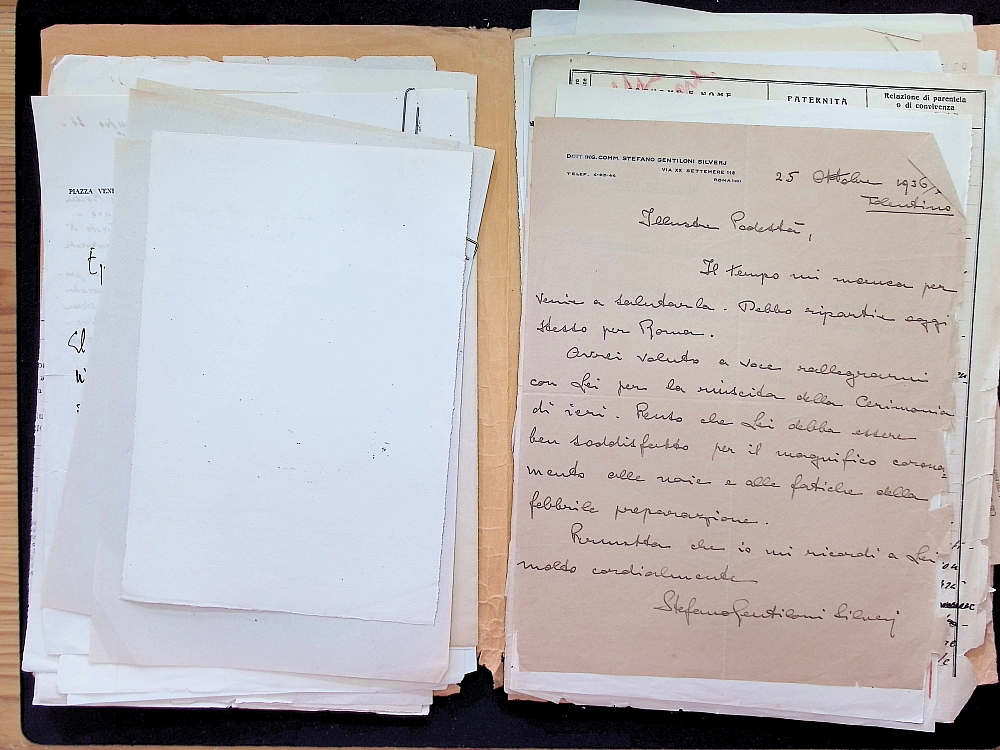 PIAZZA VENE
COGNOME E NOME
PATERNITÀ
Relazione di parentela
o di convivenza
DOTT. ING. COMM. STEFANO GENTILONI SILVERJ
VIA XX SETTEMBRE 118
TELEF.
25 Ottobre 1936
Tolentino
Illustre Podestà,
Il tempo mi manca per
venire a salutarla. Debbo ripartire oggi
stesso per Roma.
Avrei voluto a voce rallegrarmi
con Lei per la riuscita della Cerimonia
di ieri. Penso che Lei debba essere
ben soddisfatto per il magnifico corona=
mento alle noie e alle fatiche della
febbrile preparazione.
Permetta che io mi ricordi a Lei
molto cordialmente
Stefano Gentiloni Silverj